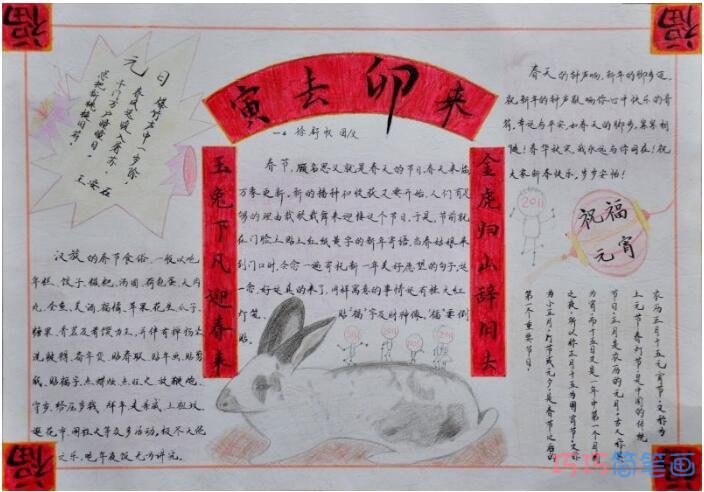 福
福
寅去卯来
元日
爆竹声中一岁除，
春风送暖入屠苏。
千门万户曈曈日，
总把新桃换旧符。
王安石
春天的钟声响，新年的脚步迈，
祝新年的钟声敲响你心中快乐的音
符，幸运与平安，如春天的脚步，紧紧相
随！春华秋实，我永远与你同在！祝
大家新春快乐，岁岁安怡！
玉兔下凡迎春来
金虎归山辞旧去
春节，顾名思义就是春天的节日。春天来临
万象更新，新的播种和收获又要开始。人们有足
够的理由载歌载舞来迎接这个节日。于是，节前就
在门脸上贴上红纸黄字的新年寄语。当春姑娘来
到门口时，会念一遍寄托新一年美好愿望的句子，这
一念好运真的来了。同样寓意的事情还有挂大红
灯笼、贴“福”字及财神像，“福”要倒
贴
汉族的春节食俗，一般以吃
年糕、饺子、糍粑、汤圆、荷包蛋、大肉
丸、全鱼、美酒、福橘、苹果、花生、瓜子、
糖果、香茗及肴馔为主，并伴有掸扬尘、
洗被褥、备年货、贴春联、贴年画、贴剪
纸、贴福字、点蜡烛、点旺火、放鞭炮、
守岁、给压岁钱、拜年、走亲戚、上祖坟、
逛花市、闹社火等众多活动，极尽天伦
之乐。吃年夜饭尤为讲究。
2011
祝福
元宵
2011
2011
2011
2011
农历正月十五元宵节，又称为
上元节、春灯节，是中国的传统
节日。正月是农历的元月，古人称夜
为宵，而十五日又是一年中第一个月圆
之夜，所以称正月十五为元宵节。又称
为小正月、灯节或元夕，是春节之后的
第一个重要节日。
福
福
巧巧简笔画